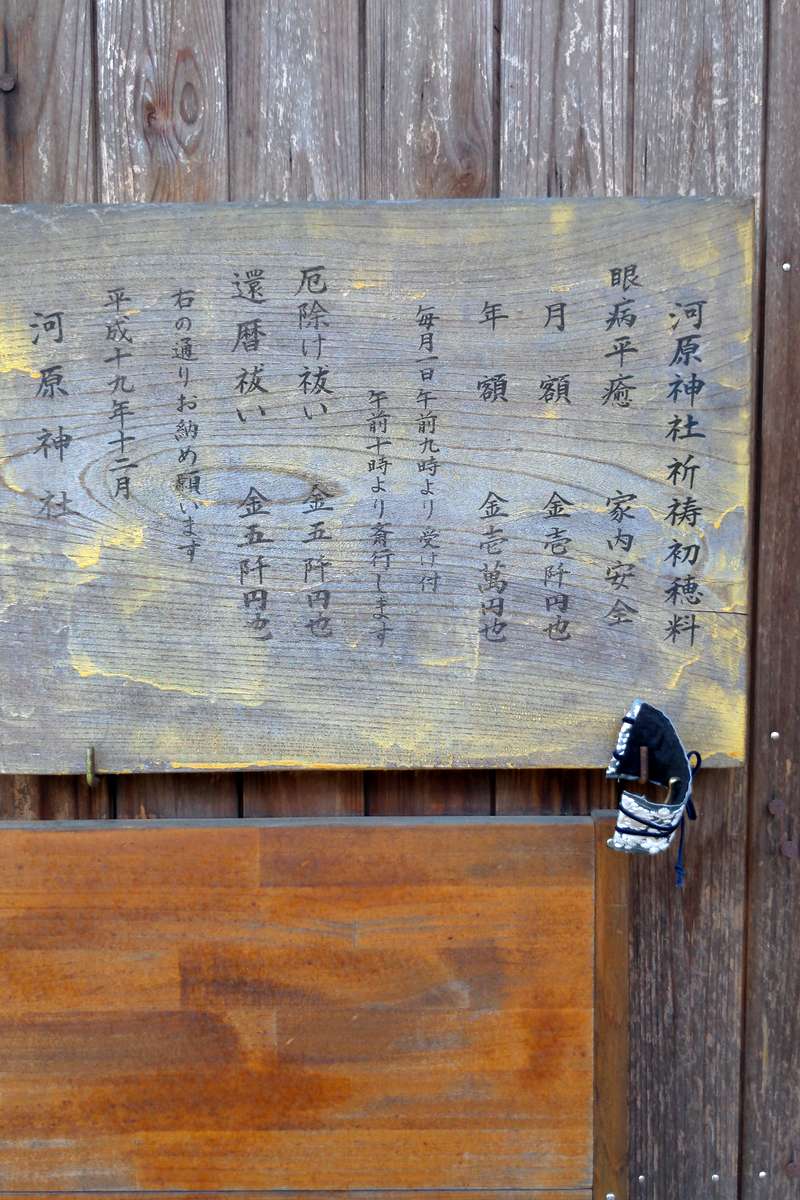 河原神社祈祷初穂料
眼病平癒 家内安全
月額 金壱阡円也
年額 金壱萬円也
毎月一日午前九時より受け付
午前十時より斎行します
厄除け祓い 金五阡円也
還暦祓い 金五阡円也
右の通りお納め願います
平成十九年十二月
河原神社